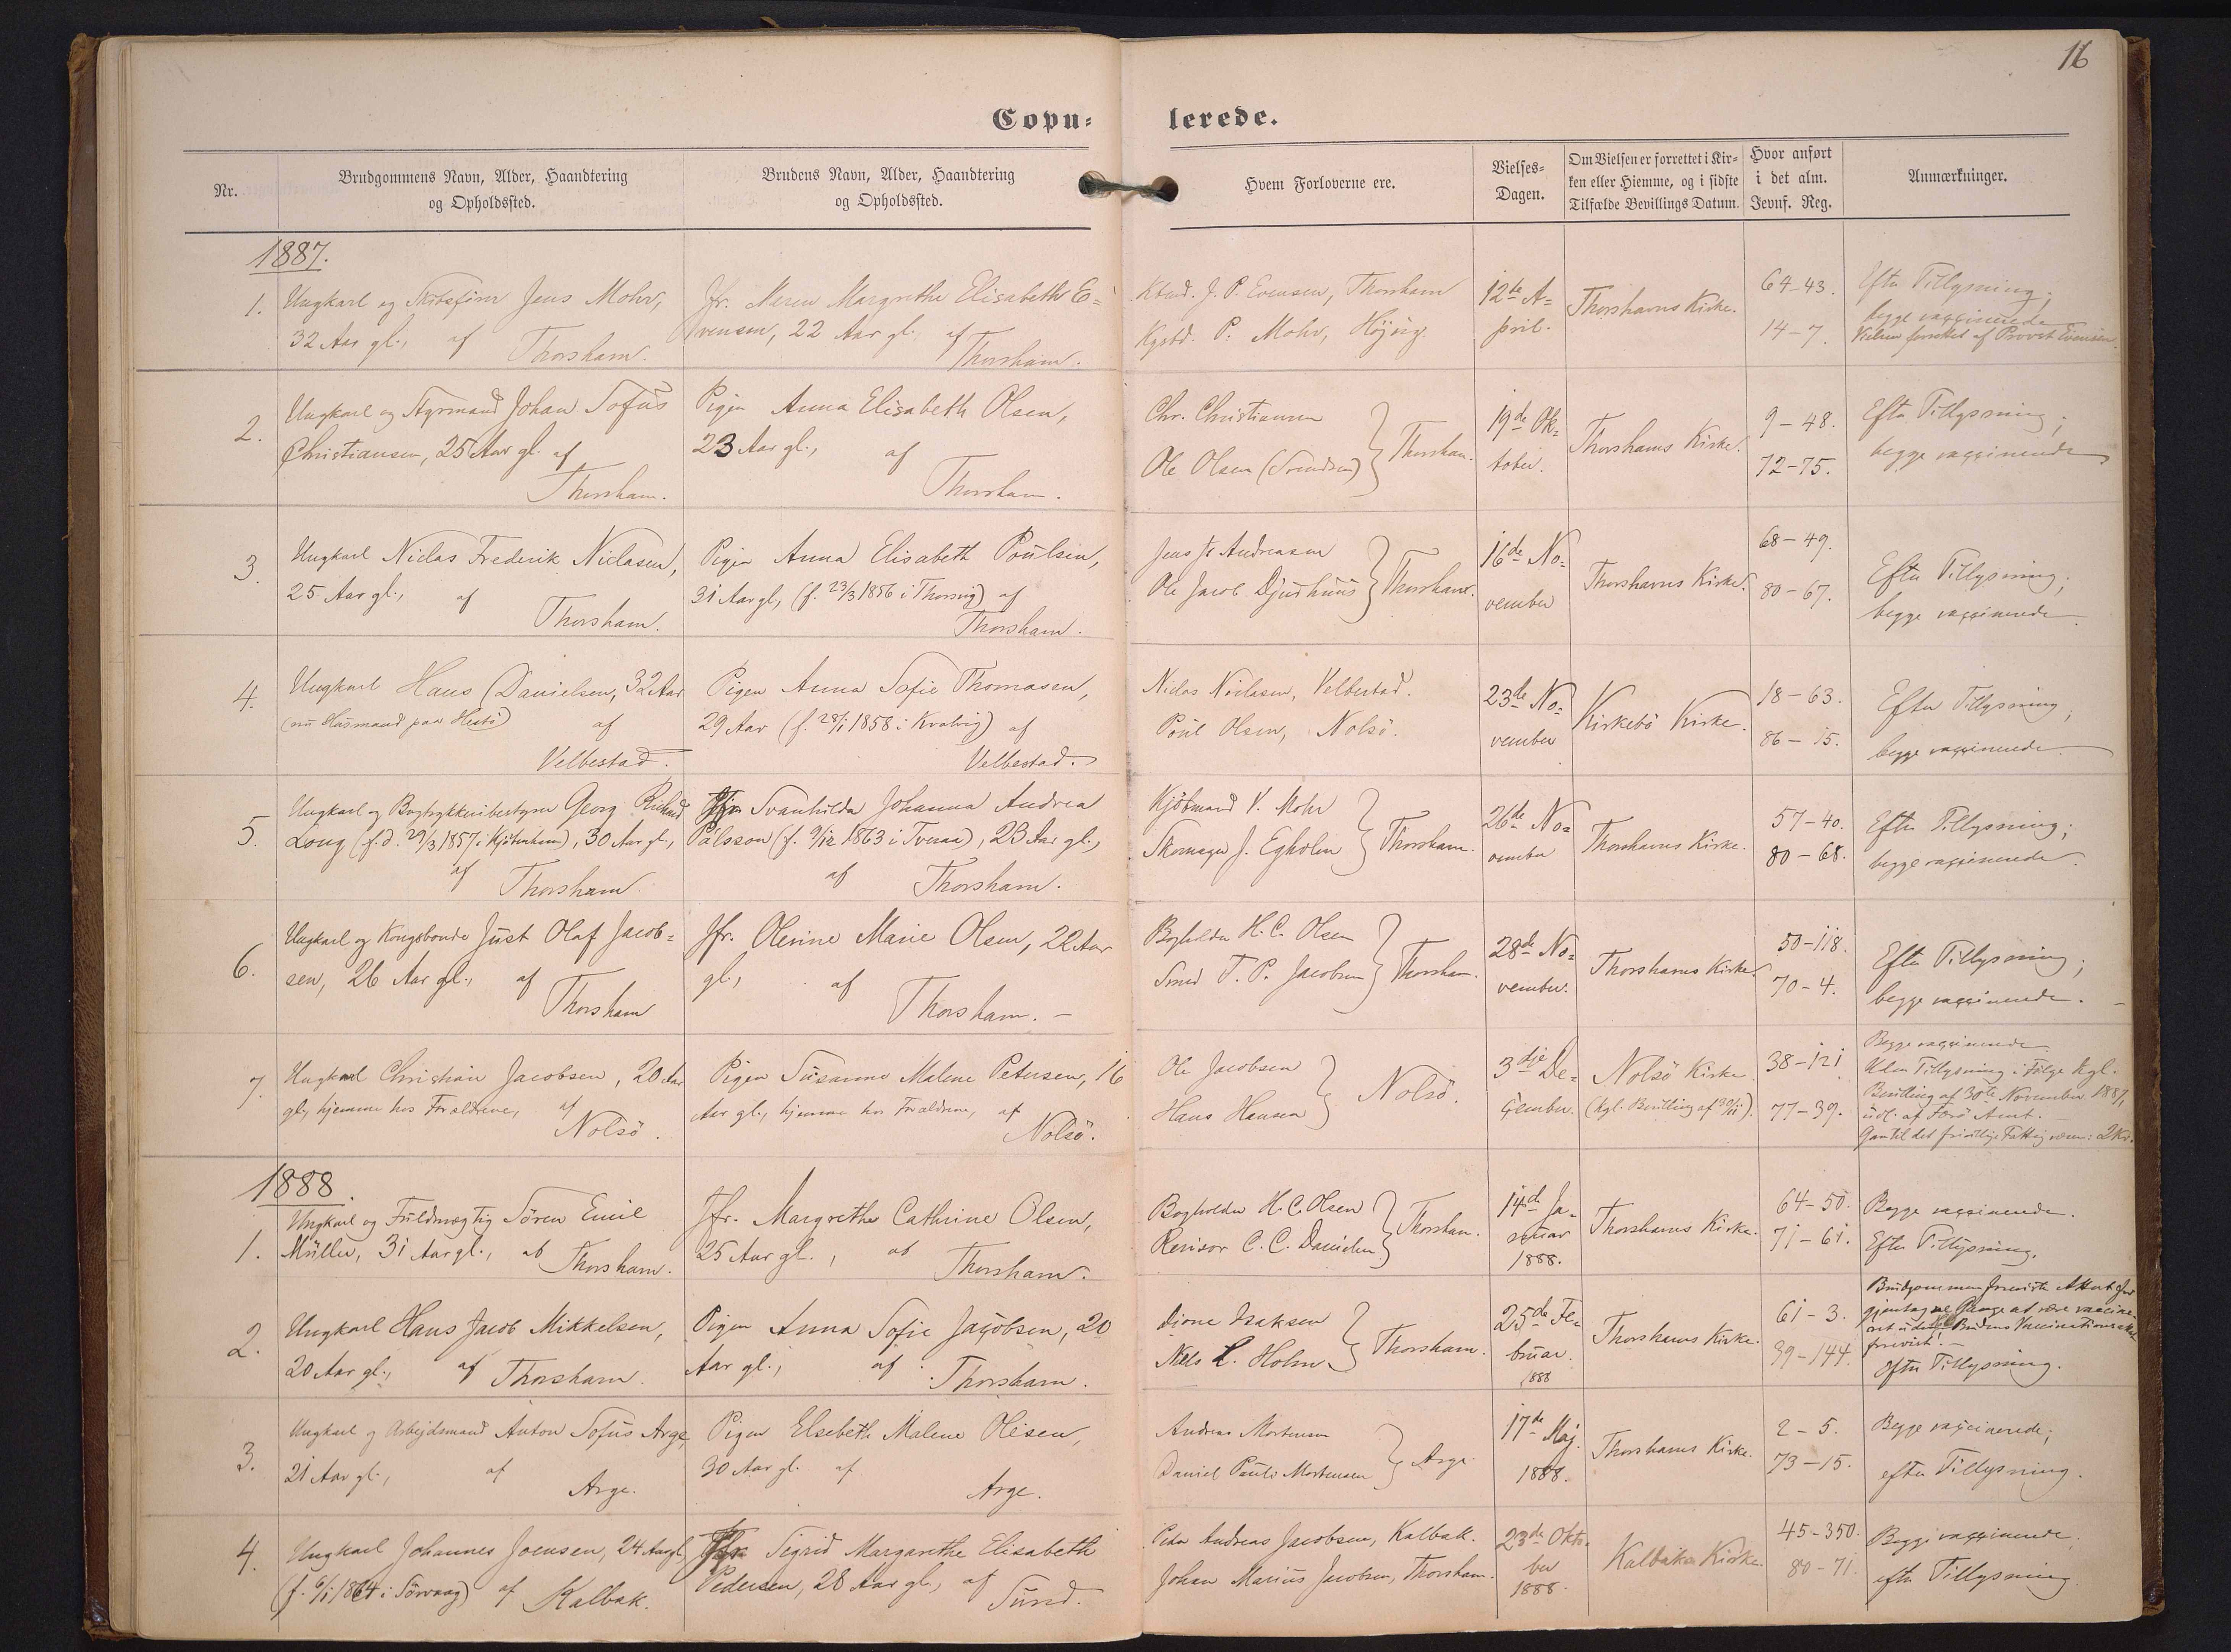 16
Copu-
lerede.
Nr.
Brudgommens Navn, Alder, Haandtering
og Opholdssted.
Brudens Navn, Alder, Haandtering
og Opholdssted.
Hvem Forloverne ere.
Vielses-
Dagen.
Om Vielsen er forrettet i Kir-
ken eller Hjemme, og i sidste
Tilfælde Bevillings Datum.
Hvor anført
i det alm.
Jevnf. Reg.
Anmærkninger.
1887.
1.
Ungkarl og Skibsfører Jens Mohr,
32 Aar gl., af
Thorshavn.
Jfr. Maren Margrethe Elisabeth E-
vensen, 22 Aar gl., af
Thorshavn.
Kbmd. J. P. Evensen, Thorshavn
Kgsbd. P. Mohr, Höjvig.
12te A-
pril.
Thorshavns Kirke.
64-43.
14-7.
Efter Tillysning;
begge vaccinerede
Vielsen forrettet af Provst Evensen.
2.
Ungkarl og Styrmand Johan Sofus
Christiansen, 25 Aar gl. af
Thorshavn.
Pigen Anna Elisabeth Olsen,
23 Aar gl., af
Thorshavn.
Chr. Christiansen
Ole Olsen (Svendsen)
Thorshavn.
19de Ok-
tober.
Thorshavns Kirke.
9-48.
72-75.
Efter Tillysning;
begge vaccinerede
3.
Ungkarl Niclas Frederik Niclasen,
25 Aar gl., af
Thorshavn.
Pigen Anna Elisabeth Poulsen,
31 Aar gl., (f. 23/3 1856 i Thorsvig) af
Thorshavn.
Jens Jc Andreasen
Ole Jacob Djurhuus
Thorshavn.
16de No-
vember
Thorshavns Kirke.
68-49.
80-67.
Efter Tillysning;
begge vaccinerede.
4.
Ungkarl Hans Danielsen, 32 Aar
(nu Husmand paa Hestö) af
Velbestad.
Pigen Anna Sofie Thomasen,
29 Aar (f. 28/1 1858 i Kvalvig) af
Velbestad.
Niclas Niclasen, Velbestad.
Poul Olsen, Nolsö.
23de No-
vember
Kirkebö Kirke.
18-63.
86-15.
Efter Tillysning;
begge vaccinerede.
5.
Ungkarl og Bogtrykkeribestyrer Georg Richard
Long (f. d. 29/3 1857 i Kjöbenhavn), 30 Aar gl.,
af Thorshavn.
Svanhilda Johanna Andrea
Pálsson (f. 9/12 1863 i Tveraa), 23 Aar gl.,
af Thorshavn.
Kjöbmand V. Mohr
Skomager J. Egholm
Thorshavn.
26de No-
vember
Thorshavns Kirke.
57-40.
80-68.
Efter Tillysning;
begge vaccinerede.
6.
Ungkarl og Kongsbonde Just Olaf Jacob-
sen, 26 Aar gl., af
Thorshavn
Jfr. Olevine Marie Olsen, 22 Aar
gl., af
Thorshavn.
Bogholder H. C. Olsen
Smed T. P. Jacobsen
Thorshavn.
28de No-
vember.
Thorshavns Kirke.
50-118.
70-4.
Efter Tillysning;
begge vaccinerede.
7.
Ungkarl Christian Jacobsen, 20 Aar
gl., hjemme hos Forældrene, af
Nolsö.
Pigen Susanne Malene Petersen, 16
Aar gl., hjemme hos Forældrene, af
Nolsö.
Ole Jacobsen
Hans Hansen
Nolsö.
3dje De-
cember.
Nolsö Kirke
(Kgl. Bevilling af 30/11).
38-121
77-39.
Begge vaccinerede
Uden Tillysning i Følge Kgl.
Bevilling af 30te November 1887,
udl. af Færö Amt.
Gav til det frivillige Fattigvæsen: 2 Kr.
1888.
1.
Ungkarl og Fuldmægtig Sören Emil
Müller, 31 Aar gl., af Thorshavn.
Jfr. Margrethe Cathrine Olsen,
25 Aar gl., af
Thorshavn.
Bogholder H. C. Olsen
Revisor C. C. Danielsen
Thorshavn.
14de Ja-
nuar
1888.
Thorshavns Kirke.
64-50.
71-61.
Begge vaccinerede.
Efter Tillysning.
2.
Ungkarl Hans Jacob Mikkelsen,
20 Aar gl., af Thorshavn.
Pigen Anna Sofie Jacobsen, 20
Aar gl., af
Thorshavn.
Dione Isaksen
Niels L. Holm
Thorshavn.
25de Fe-
bruar.
1888
Thorshavns Kirke.
61-3.
99-144.
Brudgommen foreviste Attest for
gjentagne Gange at være vaccine-
ret uden Brudens Vaccinationsattest
forevist!
efter Tillysning.
3.
Ungkarl og Arbejdsmand Anton Sofus Arge,
21 Aar gl., af
Arge.
Pigen Elsebeth Malene Olesen,
30 Aar gl. af
Arge.
Andreas Mortensen
Daniel Pauli Mortensen
Arge
17de Maj.
1888.
Thorshavns Kirke.
2-5.
73-15.
Begge vaccinerede;
efter Tillysning.
4.
Ungkarl Johannes Joensen, 24 Aar gl.,
(f. 6/1 1864 i Sörvaag) af Kalbak.
Sigrid Margarethe Elisabeth
Pedersen, 28 Aar gl., af
Sund.
Peter Andreas Jacobsen, Kalbak.
Johan Marius Jacobsen, Thorshavn.
23de Okto-
ber
1888.
Kalbaks Kirke.
45-350.
80-71.
Begge vaccinerede
efter Tillysning.